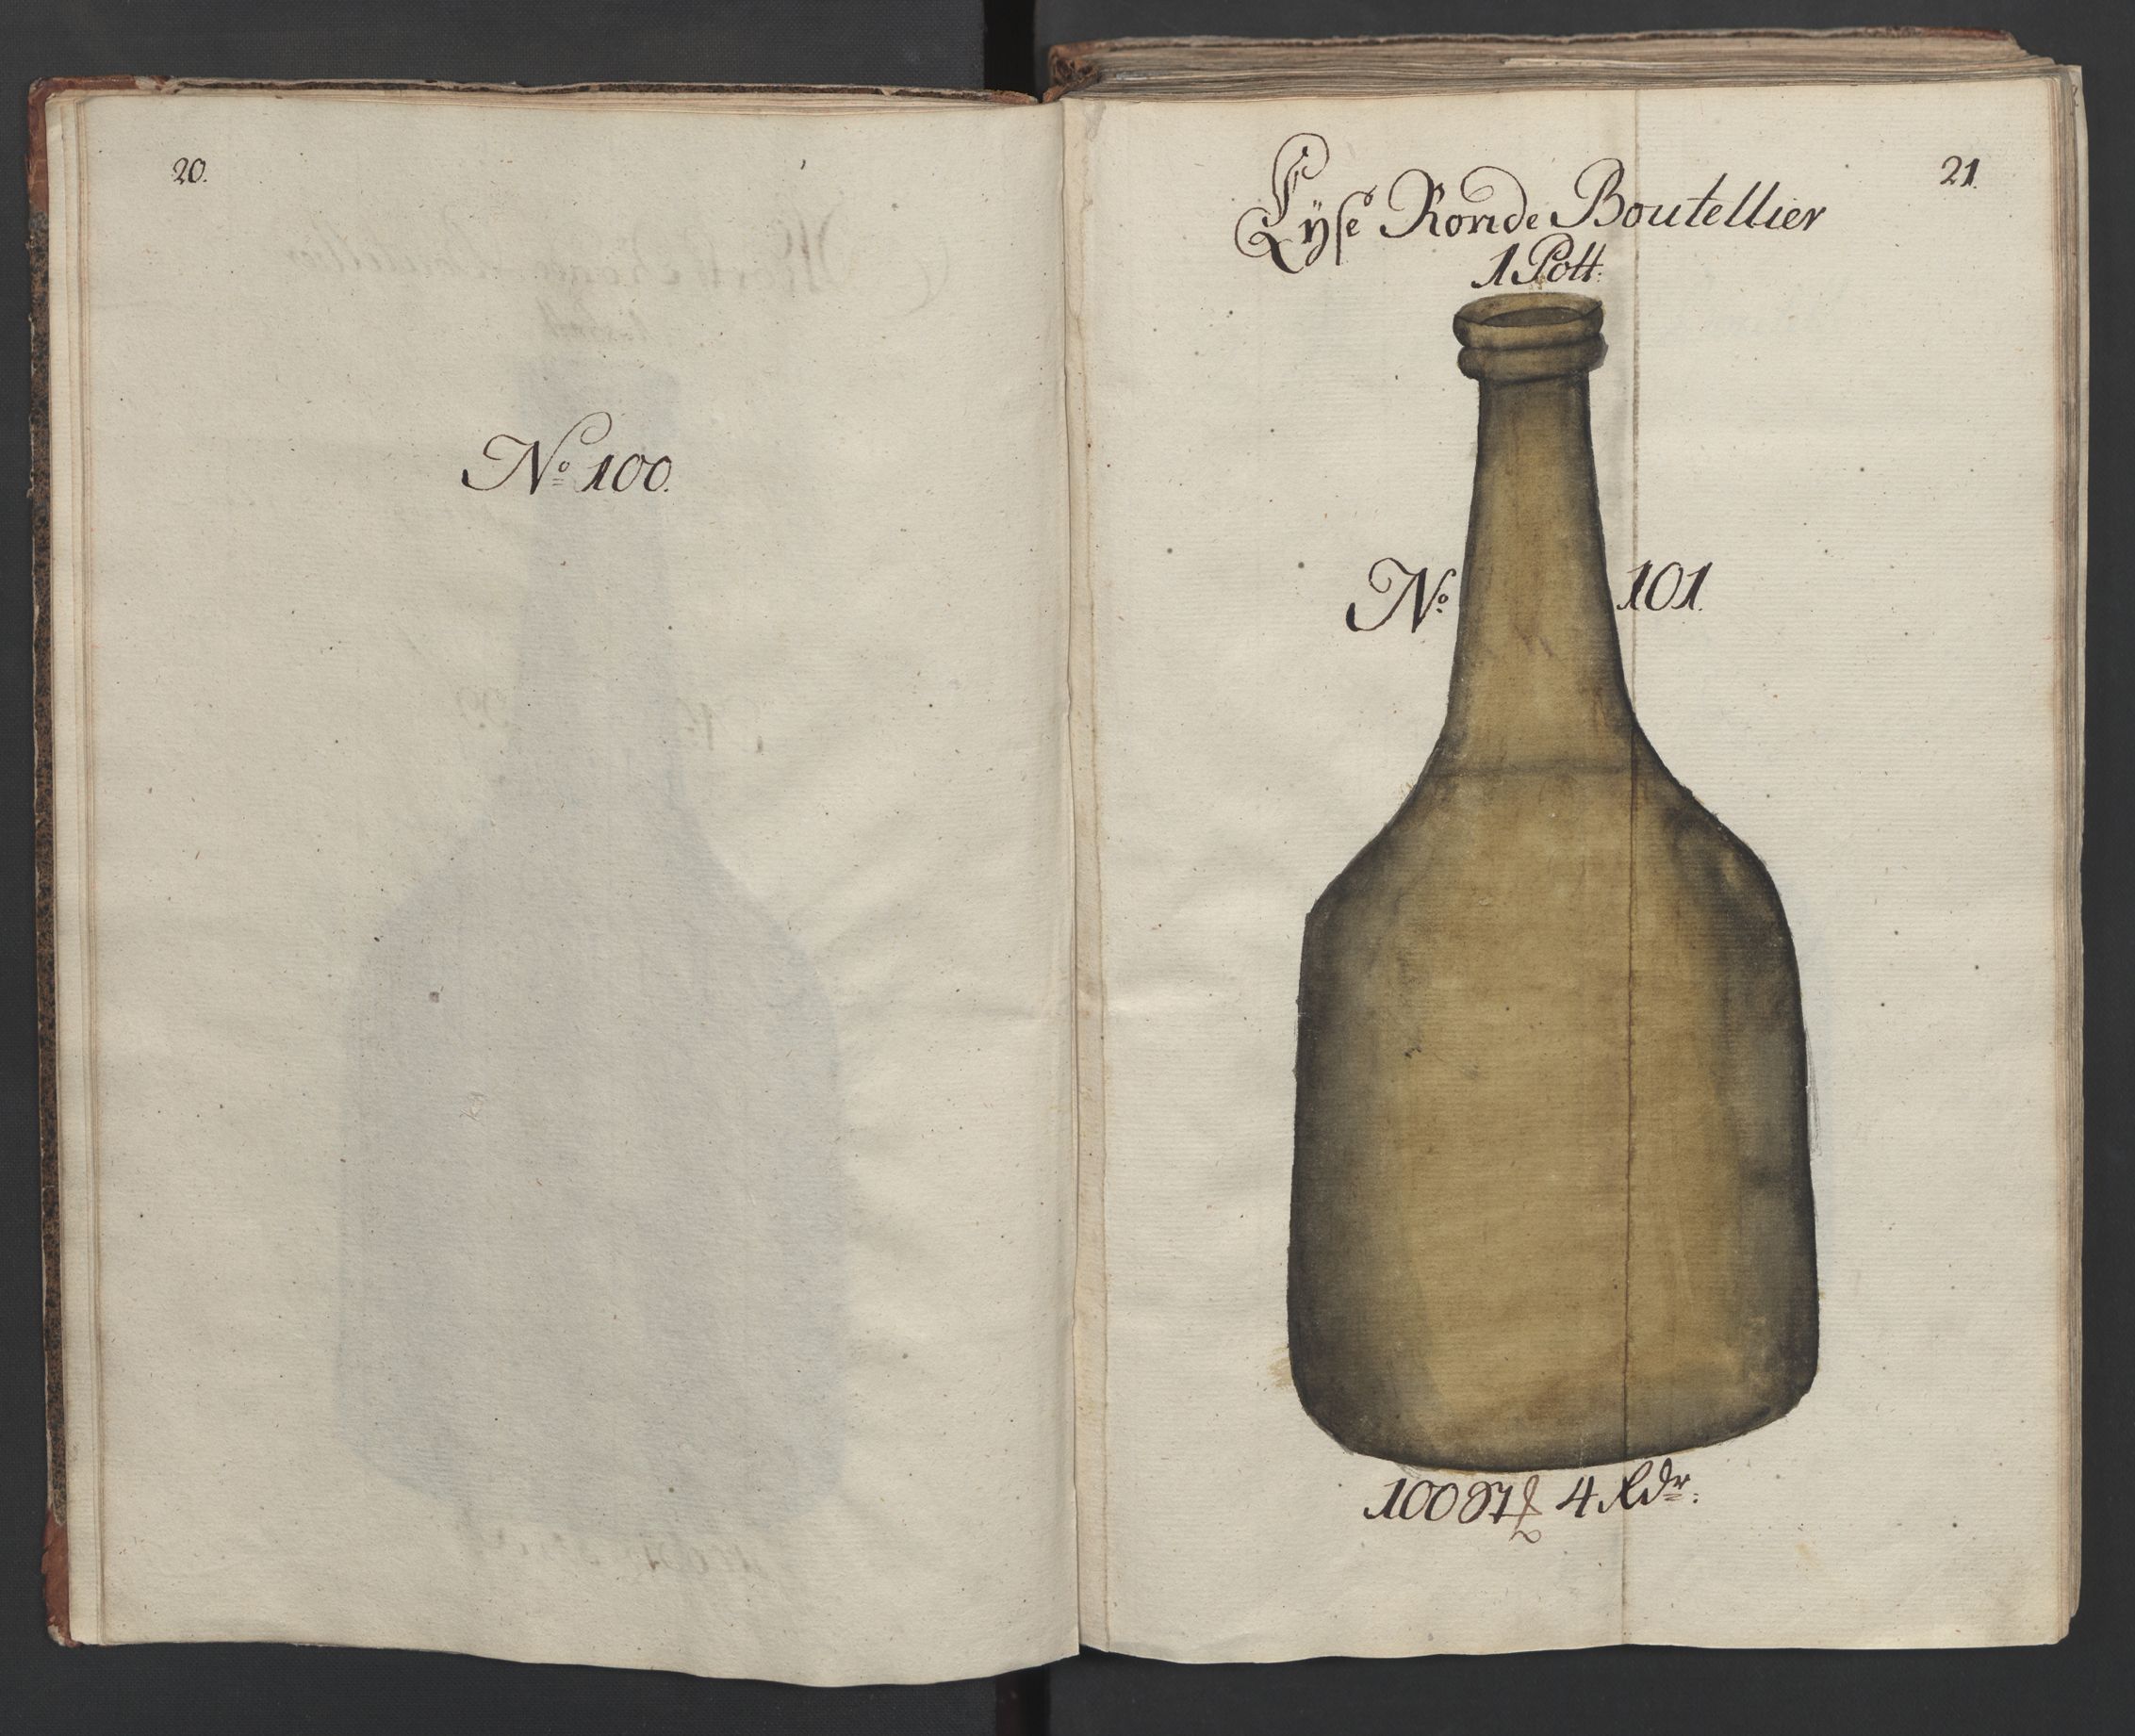 20.
No 100.
21.
Lyse Ronde Boutellier
1 Pott.
No 101.
100 St 4 Rdr: